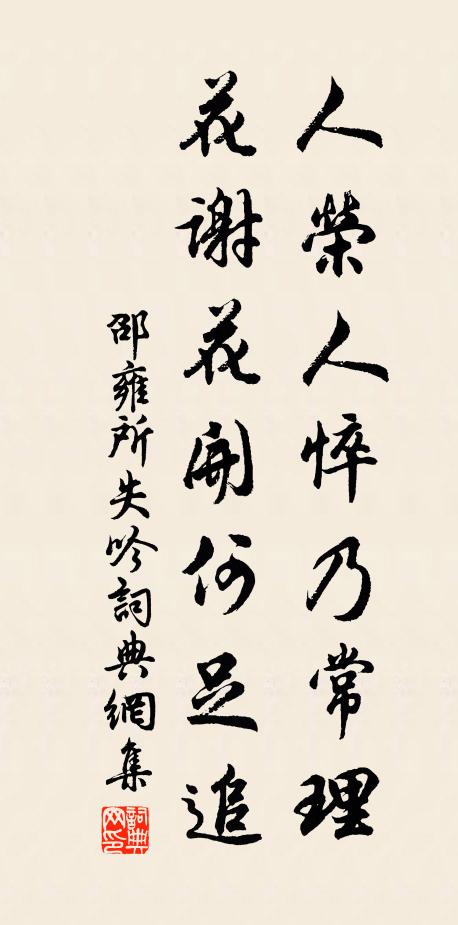 人榮人悴乃常理
花謝花開何足追
邵雍所失吟詞典網集
詞典网印